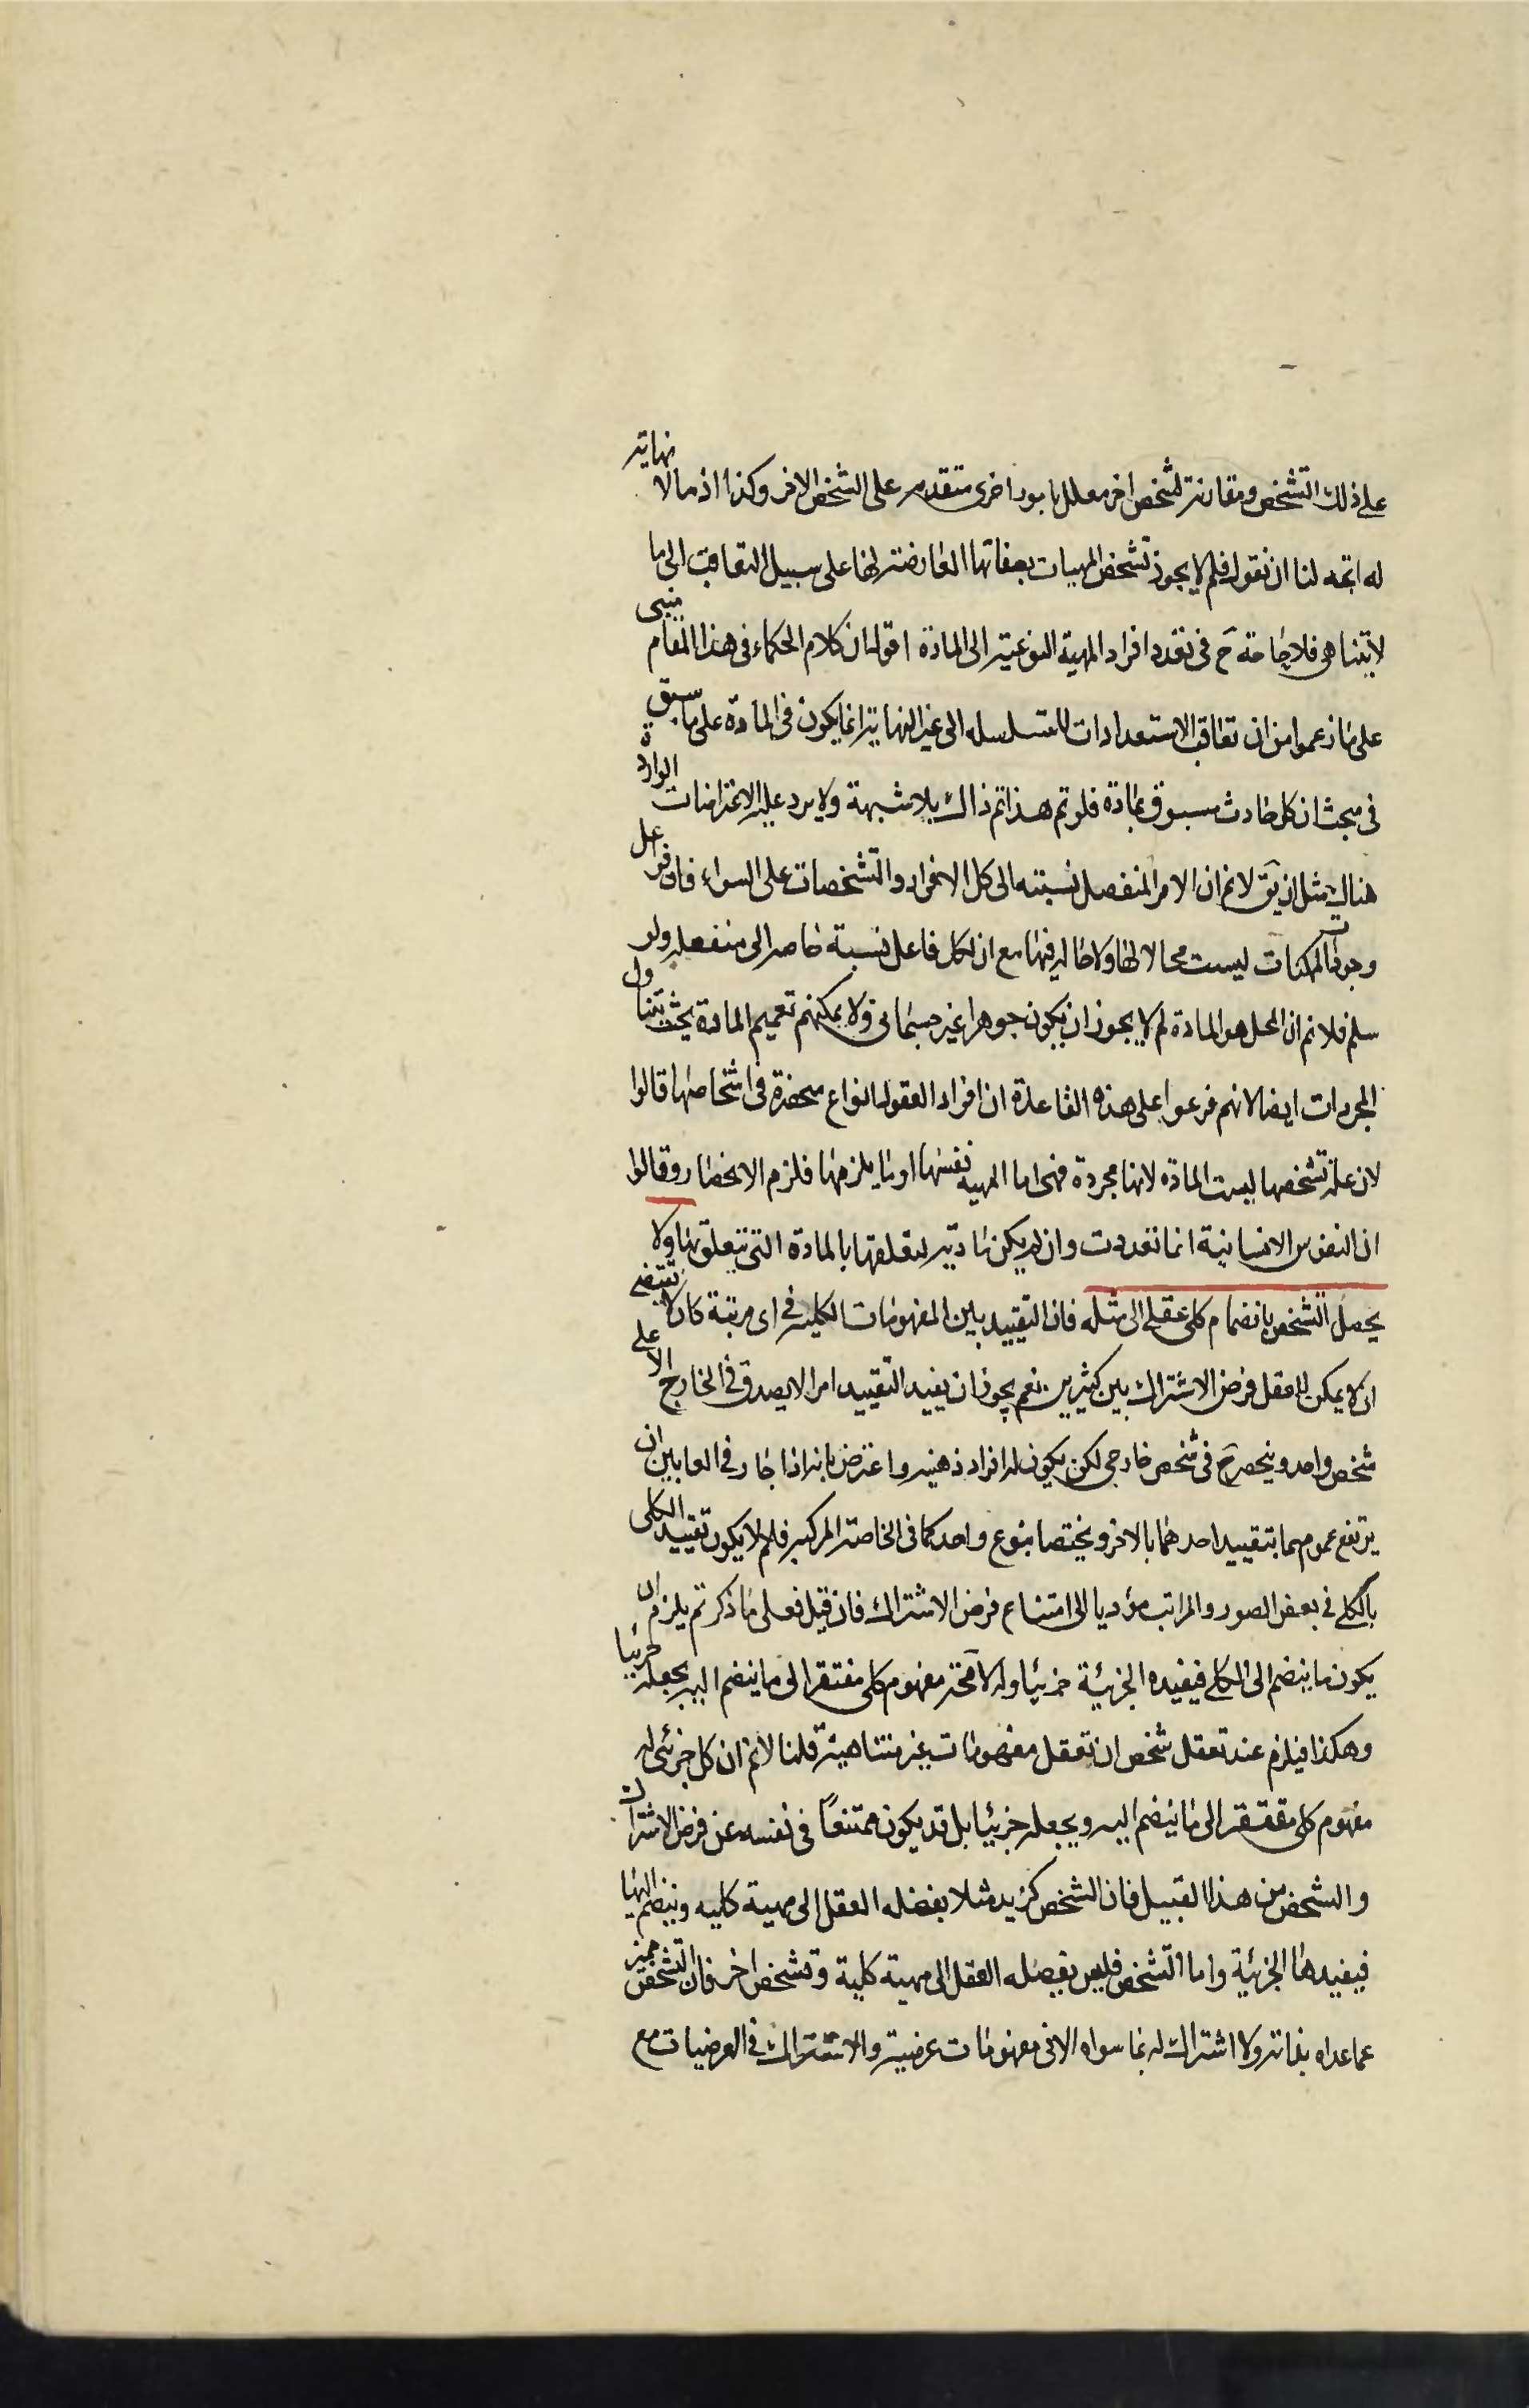 على ذلك التشخص ومقارنته لتشخص اخر معلل بامور اخرى متقدمه على الشخص الاخر وكذا اذ مالا نهاية
له اتجه لنا ان نقول فلم لا يجوز تشخص المهيات بصفاتها العارضة لها على سبيل التعاقب الى ما
لا يتناهى فلا حاجة ح فى تعدد افراد المهية النوعية الى المادة اقول ان كلام الحكماء فى هذا المقام مبنى
على ما زعموا من ان تعاقب الاستعدادات المتسلسله الى غير النهاية انما يكون فى المادة على ما سبق
فى مبحث ان كل حادث مسبوق بمادة فلو تم هذا تم ذاك بلا شبهة ولا يرد عليه الاعتراضات الواردة
هناك مثل ان يق لا نم ان الامر المنفصل نسبته الى كل الافراد والتشخصات على السواء فان فواعل
وجودات الممكنات ليست محالا لها ولا حالة فيها مع ان لكل فاعل نسبة خاصه الى منفعله ولو
سلم فلا نم ان المحل هو المادة لم لا يجوز ان يكون جوهرا غير جسمانى ولا يمكنهم تعميم المادة بحيث يتناول
المجردات ايضا لانهم فرعوا على هذه القاعدة ان افراد العقول انواع منحصرة فى اشخاصها قالوا
لان علة تشخصها ليست المادة لانها مجردة فهى اما المهية نفسها او ما يلزمها فلزم الانحصار وقالوا
ان النفوس الانسانية انما تعددت وان لم يكن مادية لتعلقها بالمادة التى تتعلق بها ولا
يحصل التشخص بانضمام كلى عقلى الى مثله فان التقييد بين المفهومات الكلية فى اى مرتبة كان لا يقتضى
ان لا يمكن للعقل فرض الاشتراك بين كثيرين نعم يجوز ان يفيد التقييد امرا لا يصدق فى الخارج الا على
شخص واحد وينحصر ح فى شخص خارجى لكن يكون له افراد ذهنيه واعترض بانه اذا جاز فى العامين ان
يرتفع عمومهما بتقييد احدهما بالاخر ويختصا بنوع واحد كما فى الخاصة المركبه فلم لا يكون تقييد الكلى
بالكلى فى بعض الصور والمراتب مؤديا الى امتناع فرض الاشتراك فان قيل فعلى ما ذكرتم يلزم ان
يكون ما ينضم الى الكلى فيفيده الجزئية جزئيا وله لا محة مفهوم كلى مفتقر الى ما ينضم اليه يجعله جزئيا
وهكذا فيلزم عند تعقل شخص ان تعقل مفهومات غير متناهية قلنا لا نم ان كل جزئى له
مفهوم كلى مفتقر الى ما ينضم اليه ويجعله جزئيا بل قد يكون ممتنعاً فى نفسه عن فرض الاشتراك
والشخص من هذا القبيل فان الشخص كزيد مثلا يفصله العقل الى مهية كليه وينضم اليها
فيفيدها الجزئية واما التشخص فليس يفصله العقل الى مهية كلية وتشخص اخر فان التشخص مميز
عما عداه بذاته ولا اشتراك له بما سواه الا فى مفهومات عرضية والاشتراك فى العرضيات مع